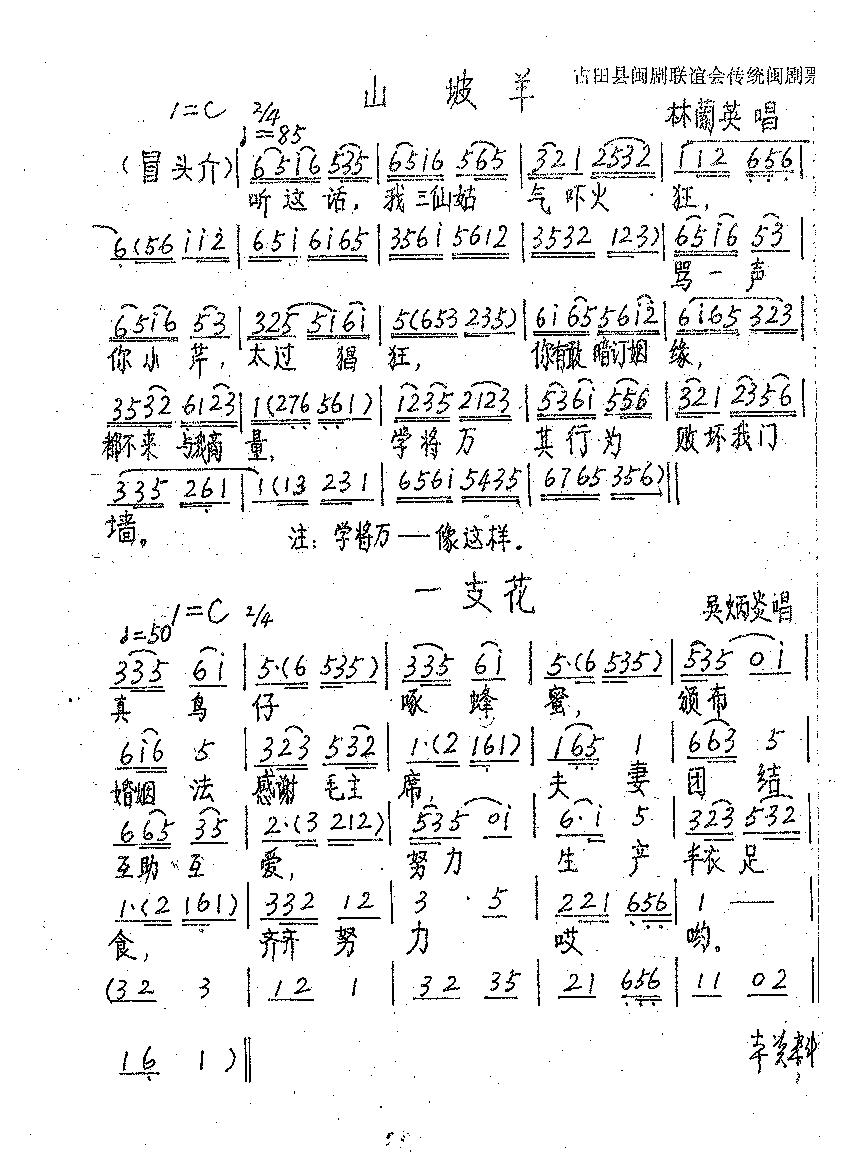 古田县闽剧联谊会传统闽剧
山 坡 羊
1=C 2/4
♩=85
林蘭英 唱
(冒头介)| 6516 535 | 6516 565 | 321 2532 | 112 656
听这话, 我三仙姑 气吓火 狂,
6(56 112 | 651 6165 | 3561 5612 | 3532 123) | 6516 53 |
骂一声
6516 53 | 325 5161 | 5(653 235) | 6165 5612 | 6165 323 |
你小芹, 太过猖 狂, 你有敢暗订姻 缘,
3532 6123 | 1(276 561) | 1235 2123 | 5361 556 | 321 2356 |
都不来与我商 量, 学将万 其行为 败坏我门
335 261 | 1(13 231 | 6561 5435 | 6765 356) ||
墙。 注: 学将万——像这样.
一 支 花
1=C 2/4
♩=50
吴炳炎唱
335 61 | 5·(6 535) | 335 61 | 5·(6 535) | 535 01
真 鸟 仔 啄 蜂 蜜, 颁布
616 5 | 323 532 | 1·(2 161) | 165 1 | 663 5
婚姻 法 感谢毛主 席, 夫 妻 团 结
665 35 | 2·(3 212) | 535 01 | 6·1 5 | 323 532
互助互 爱, 努力 生 产 丰衣足
1·(2 161) | 332 12 | 3 · 5 | 221 656 | 1 —
食, 齐齐努 力 哎 哟。
(32 3 | 12 1 | 32 35 | 21 656 | 11 02 ||
16 1) ||